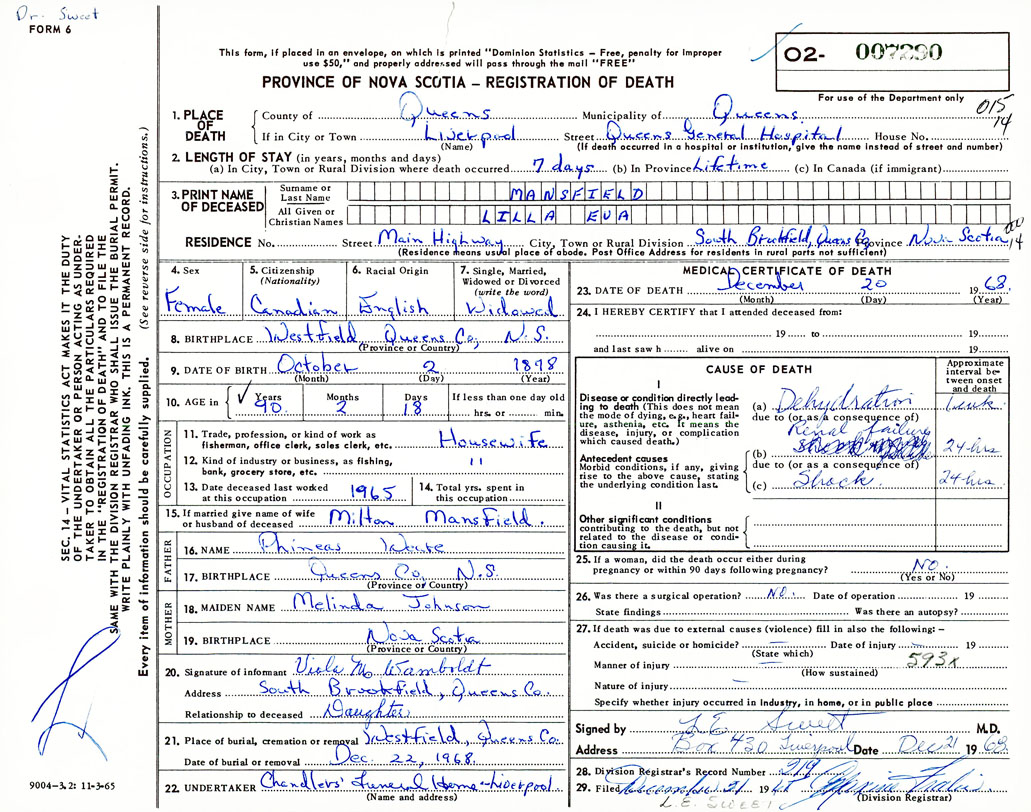 Dr. Sweet
FORM 6
This form, if placed in an envelope, on which is printed "Dominion Statistics – Free, penalty for improper
use $50," and properly addressed will pass through the mail "FREE"
PROVINCE OF NOVA SCOTIA – REGISTRATION OF DEATH
02- 007290
For use of the Department only
015
14
1. PLACE OF DEATH
County of Queens Municipality of Queens
If in City or Town Liverpool Street Queens General Hospital House No.
(Name) (If death occurred in a hospital or institution, give the name instead of street and number)
2. LENGTH OF STAY (in years, months and days)
(a) In City, Town or Rural Division where death occurred 7 days (b) In Province Lifetime (c) In Canada (if immigrant)
3. PRINT NAME OF DECEASED
Surname or Last Name MANSFIELD
All Given or Christian Names LILLA EVA
RESIDENCE No. Street Main Highway City, Town or Rural Division South Brookfield, Queens Co. Province Nova Scotia
14
(Residence means usual place of abode. Post Office Address for residents in rural parts not sufficient)
4. Sex
Female
5. Citizenship
(Nationality)
Canadian
6. Racial Origin
English
7. Single, Married,
Widowed or Divorced
(write the word)
Widowed
8. BIRTHPLACE Westfield, Queens Co, N.S.
(Province or Country)
9. DATE OF BIRTH October 2 1898
(Month) (Day) (Year)
10. AGE in Years Months Days If less than one day old
90 2 18 hrs. or min.
OCCUPATION
11. Trade, profession, or kind of work as
fisherman, office clerk, sales clerk, etc. Housewife
12. Kind of industry or business, as fishing,
bank, grocery store, etc. "
13. Date deceased last worked
at this occupation 1965
14. Total yrs. spent in
this occupation
15. If married give name of wife
or husband of deceased Milton Mansfield.
FATHER
16. NAME Phineas
17. BIRTHPLACE Queens Co. N.S.
(Province or Country)
MOTHER
18. MAIDEN NAME Melinda Johnson
19. BIRTHPLACE Nova Scotia
(Province or Country)
20. Signature of informant Viola M. Wamboldt
Address South Brookfield, Queens Co.
Relationship to deceased Daughter
21. Place of burial, cremation or removal Westfield, Queens Co.
Date of burial or removal Dec. 22, 1968.
22. UNDERTAKER Chandlers' Funeral Home - Liverpool
(Name and address)
MEDICAL CERTIFICATE OF DEATH
23. DATE OF DEATH December 20 1968.
(Month) (Day) (Year)
24. I HEREBY CERTIFY that I attended deceased from:
19 to 19
and last saw h alive on 19
CAUSE OF DEATH
Approximate interval between onset and death
I
Disease or condition directly leading
to death (This does not mean
the mode of dying, e.g., heart failure,
asthenia, etc. It means the
disease, injury, or complication
which caused death.)
(a) Dehydration 1 wk.
due to (or as a consequence of)
Renal failure
Antecedent causes
Morbid conditions, if any, giving
rise to the above cause, stating
the underlying condition last.
(b) 24 hrs
due to (or as a consequence of)
(c) Shock. 24 hrs
II
Other significant conditions
contributing to the death, but not
related to the disease or condition
causing it.
25. If a woman, did the death occur either during
pregnancy or within 90 days following pregnancy? NO.
(Yes or No)
26. Was there a surgical operation? NO. Date of operation 19
State findings Was there an autopsy?
27. If death was due to external causes (violence) fill in also the following: –
Accident, suicide or homicide? Date of injury 19
(State which) 593x
Manner of injury
(How sustained)
Nature of injury
Specify whether injury occurred in industry, in home, or in public place
Signed by L E Sweet M.D.
Address Box 430 Liverpool Date Dec 21 1968
28. Division Registrar's Record Number 219
29. Filed December 21 19
(Division Registrar)
L.E. SWEET
SEC. 14 – VITAL STATISTICS ACT MAKES IT THE DUTY
OF THE UNDERTAKER OR PERSON ACTING AS UNDERTAKER
TO OBTAIN ALL THE PARTICULARS REQUIRED
IN THE "REGISTRATION OF DEATH" AND TO FILE THE
SAME WITH THE DIVISION REGISTRAR WHO SHALL ISSUE THE BURIAL PERMIT.
WRITE PLAINLY WITH UNFADING INK. THIS IS A PERMANENT RECORD.
Every item of information should be carefully supplied. (See reverse side for instructions.)
9004-3.2: 11-3-65